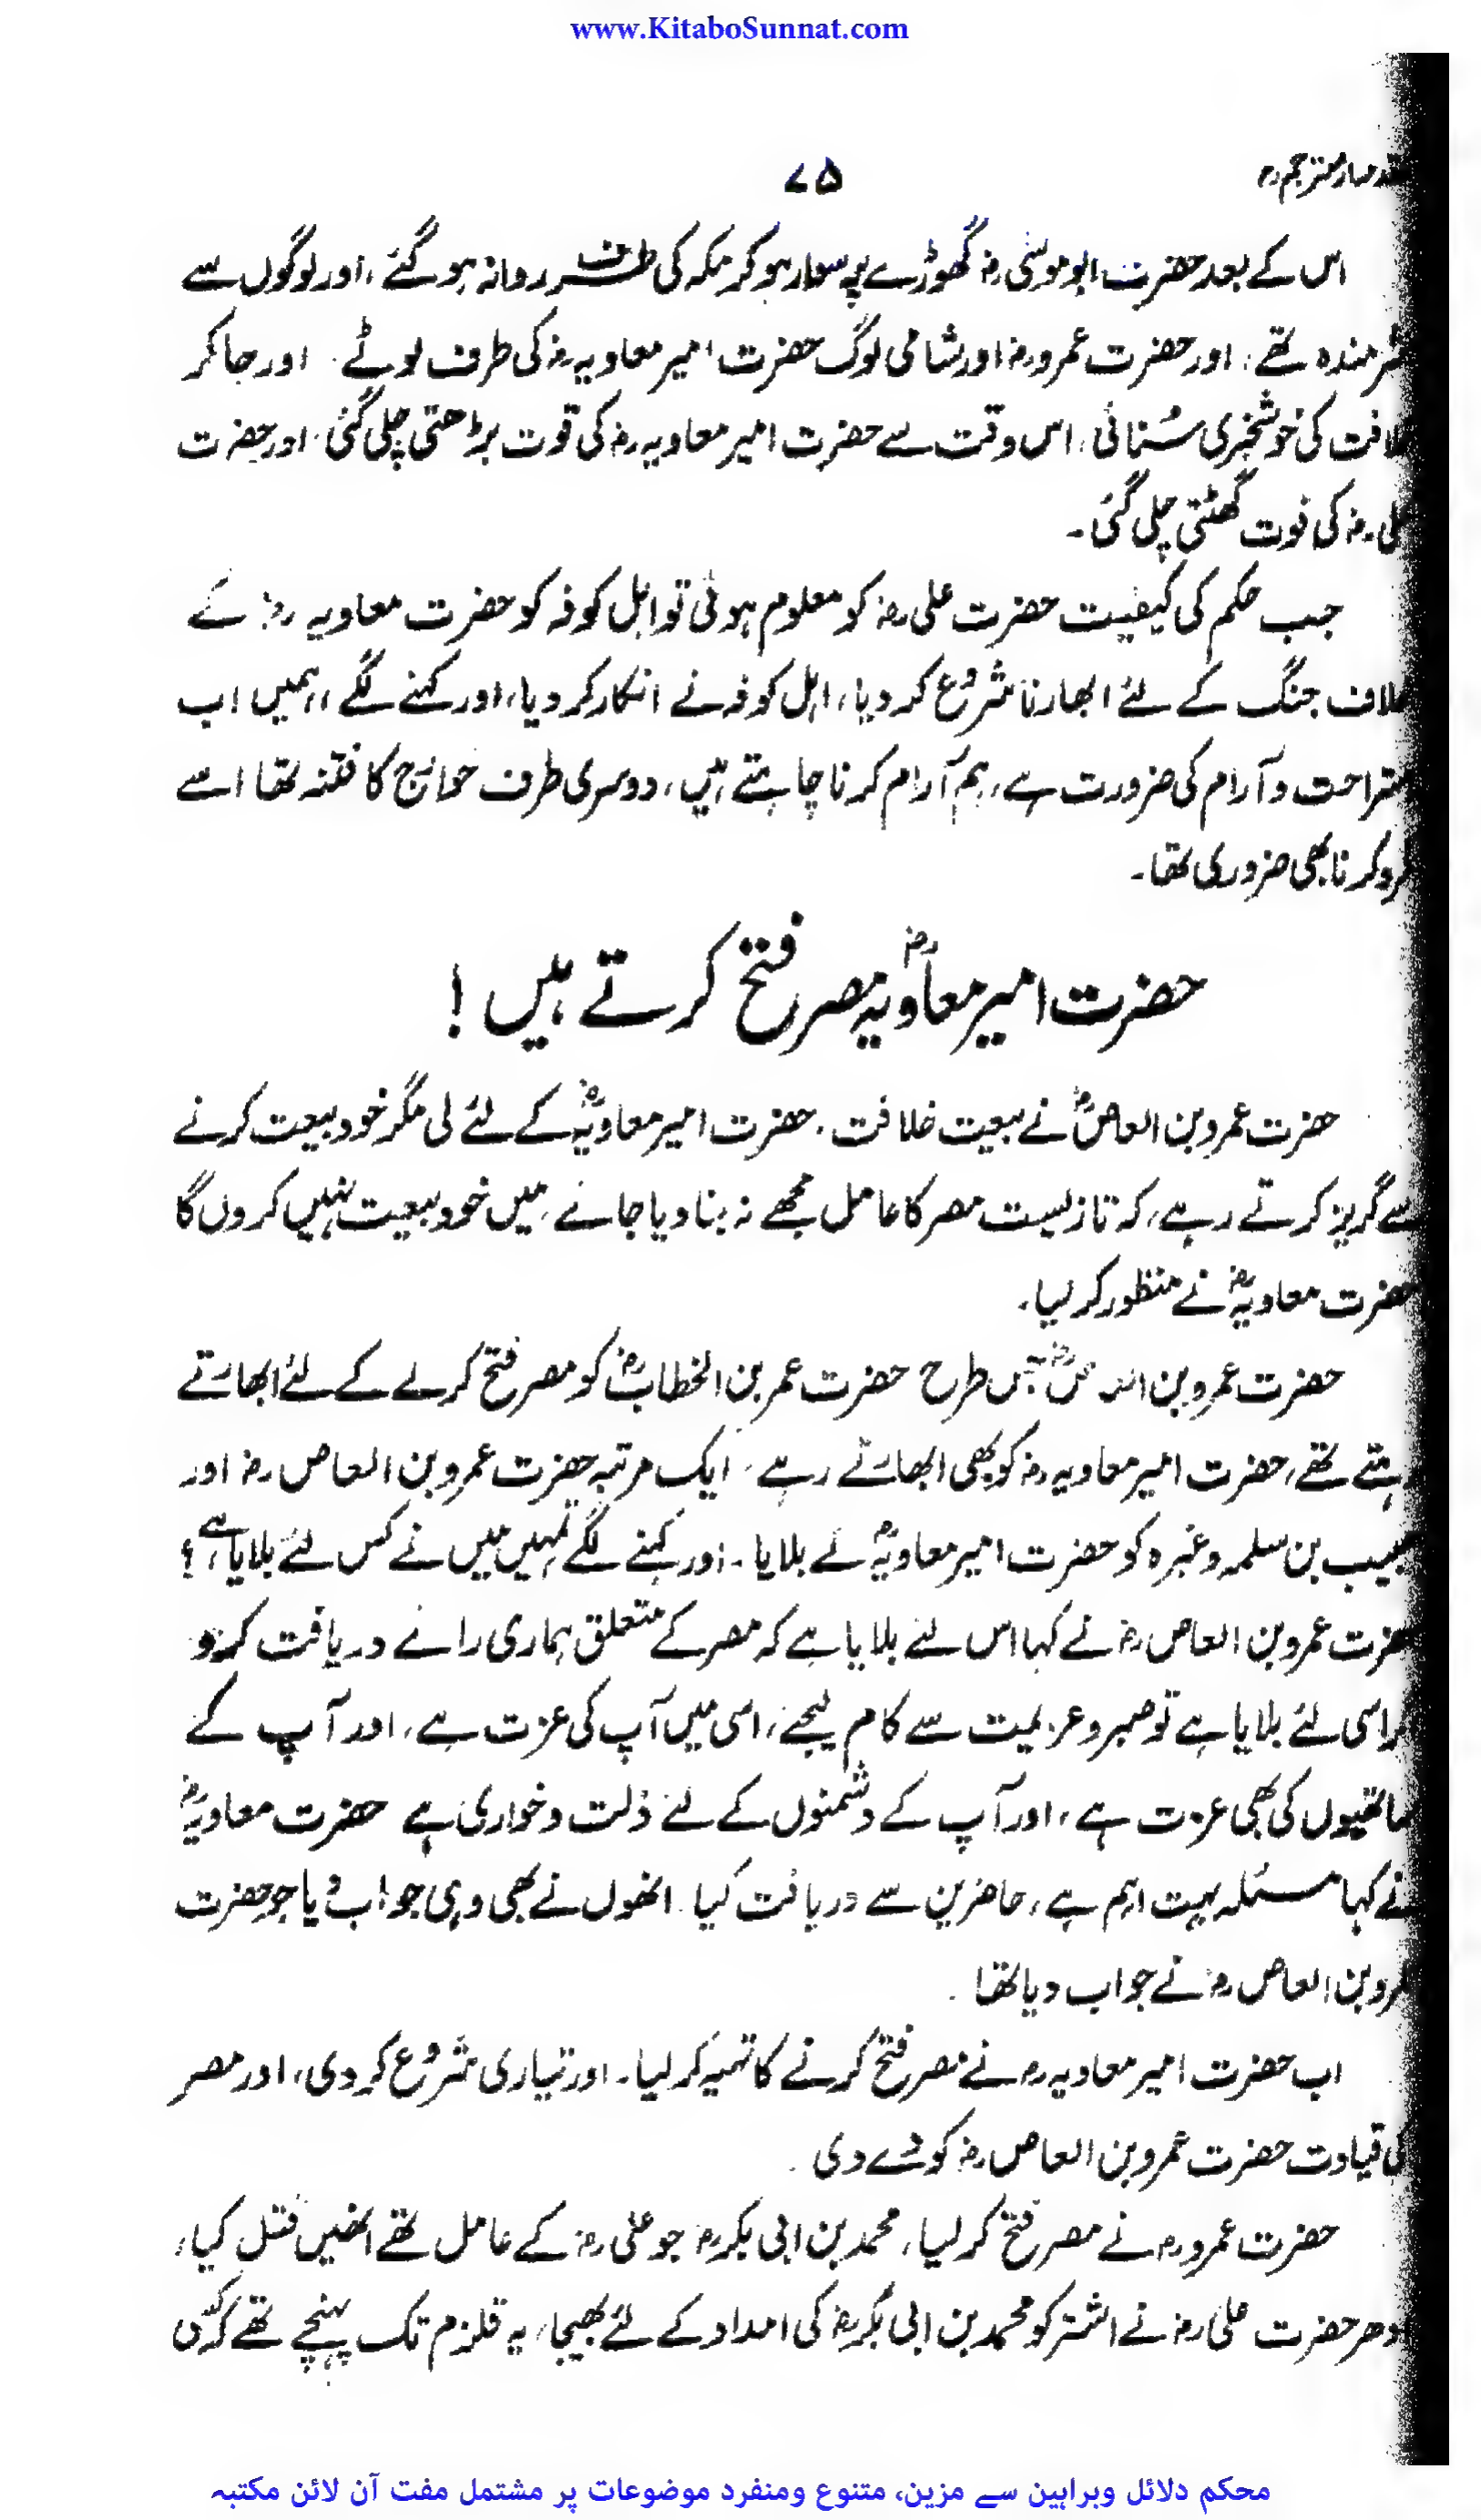 www.KitaboSunnat.com
۷۵
اس کے بعد حضرت ابو موسیٰ رضہ گھوڑے پر سوار ہو کر مکہ کی طرف روانہ ہو گئے، اور لوگوں سے
شرمندہ تھے، اور حضرت عمرو رضہ اور شامی لوگ حضرت امیر معاویہ رضہ کی طرف لوٹے۔ اور جا کر
خلافت کی خوشخبری سُنائی، اس وقت سے حضرت امیر معاویہ رضہ کی قوت بڑھتی چلی گئی، اور حضرت
علی رضہ کی قوت گھٹتی چلی گئی۔
جب حکم کی کیفیت حضرت علی رضہ کو معلوم ہوئی تو اہل کوفہ کو حضرت معاویہ رضہ کے
خلاف جنگ کے لئے ابھارنا شروع کر دیا، اہل کوفہ نے انکار کر دیا، اور کہنے لگے، ہمیں اب
ستراحت و آرام کی ضرورت ہے، ہم آرام کرنا چاہتے ہیں، دوسری طرف خوارج کا فتنہ تھا اسے
کرنا بھی ضروری تھا۔
حضرت امیر معاویہؓ مصر فتح کرتے ہیں !
حضرت عمرو بن العاصؓ نے بیعت خلافت، حضرت امیر معاویہؓ کے لئے لی مگر خود بیعت کرنے
سے گریز کرتے رہے، کہ تازیست مصر کا عامل مجھے نہ بنا دیا جائے، میں خود بیعت نہیں کروں گا
حضرت معاویہؓ نے منظور کر لیا۔
حضرت عمرو بن العاصؓ جس طرح حضرت عمر بن الخطابؓ کو مصر فتح کرنے کے لئے ابھارتے
رہتے تھے، حضرت امیر معاویہ رضہ کو بھی ابھارتے رہے، ایک مرتبہ حضرت عمرو بن العاص رضہ اور
حبیب بن سلمہ وغیرہ کو حضرت امیر معاویہؓ نے بلایا۔ اور کہنے لگے تمہیں میں نے کس لئے بلایا ہے؟
حضرت عمرو بن العاص رضہ نے کہا اس لئے بلایا ہے کہ مصر کے متعلق ہماری رائے دریافت کرو
اسی لئے بلایا ہے تو صبر و عزیمت سے کام لیجے، اسی میں آپ کی عزت ہے، اور آپ کے
ساتھیوں کی بھی عزت ہے، اور آپ کے دشمنوں کے لئے ذلت و خواری ہے حضرت معاویہؓ
نے کہا مسئلہ بہت اہم ہے، حاضرین سے دریافت کیا۔ انھوں نے بھی وہی جواب دیا جو حضرت
عمرو بن العاص رضہ نے جواب دیا تھا۔
اب حضرت امیر معاویہ رضہ نے مصر فتح کرنے کا تہیہ کر لیا۔ اور تیاری شروع کر دی، اور مصر
کی قیادت حضرت عمرو بن العاص رضہ کو دے دی۔
حضرت عمرو رضہ نے مصر فتح کر لیا، محمد بن ابی بکر رضہ جو علی رضہ کے عامل تھے انھیں قتل کیا،
ادھر حضرت علی رضہ نے اشتر کو محمد بن ابی بکر رضہ کی امداد کے لئے بھیجا، یہ قلزم تک پہنچے تھے کہ کسی
محکم دلائل وبراہین سے مزین، متنوع ومنفرد موضوعات پر مشتمل مفت آن لائن مکتبہ